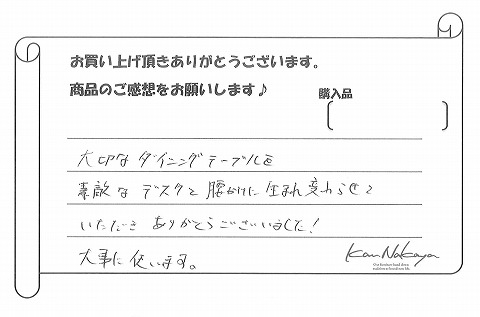 お買い上げ頂きありがとうございます。
商品のご感想をお願いします♪
購入品
大切なダイニングテーブルを
素敵なデスクと腰かけに生まれ変わらせて
いただきありがとうございました!
大事に使います。
Kan Nakaya